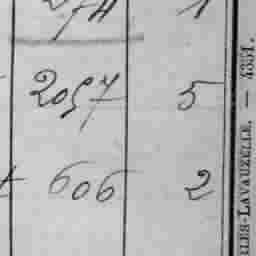 274 1
2057 5
606 2
LES-LAVAUZELLE. — 4351.